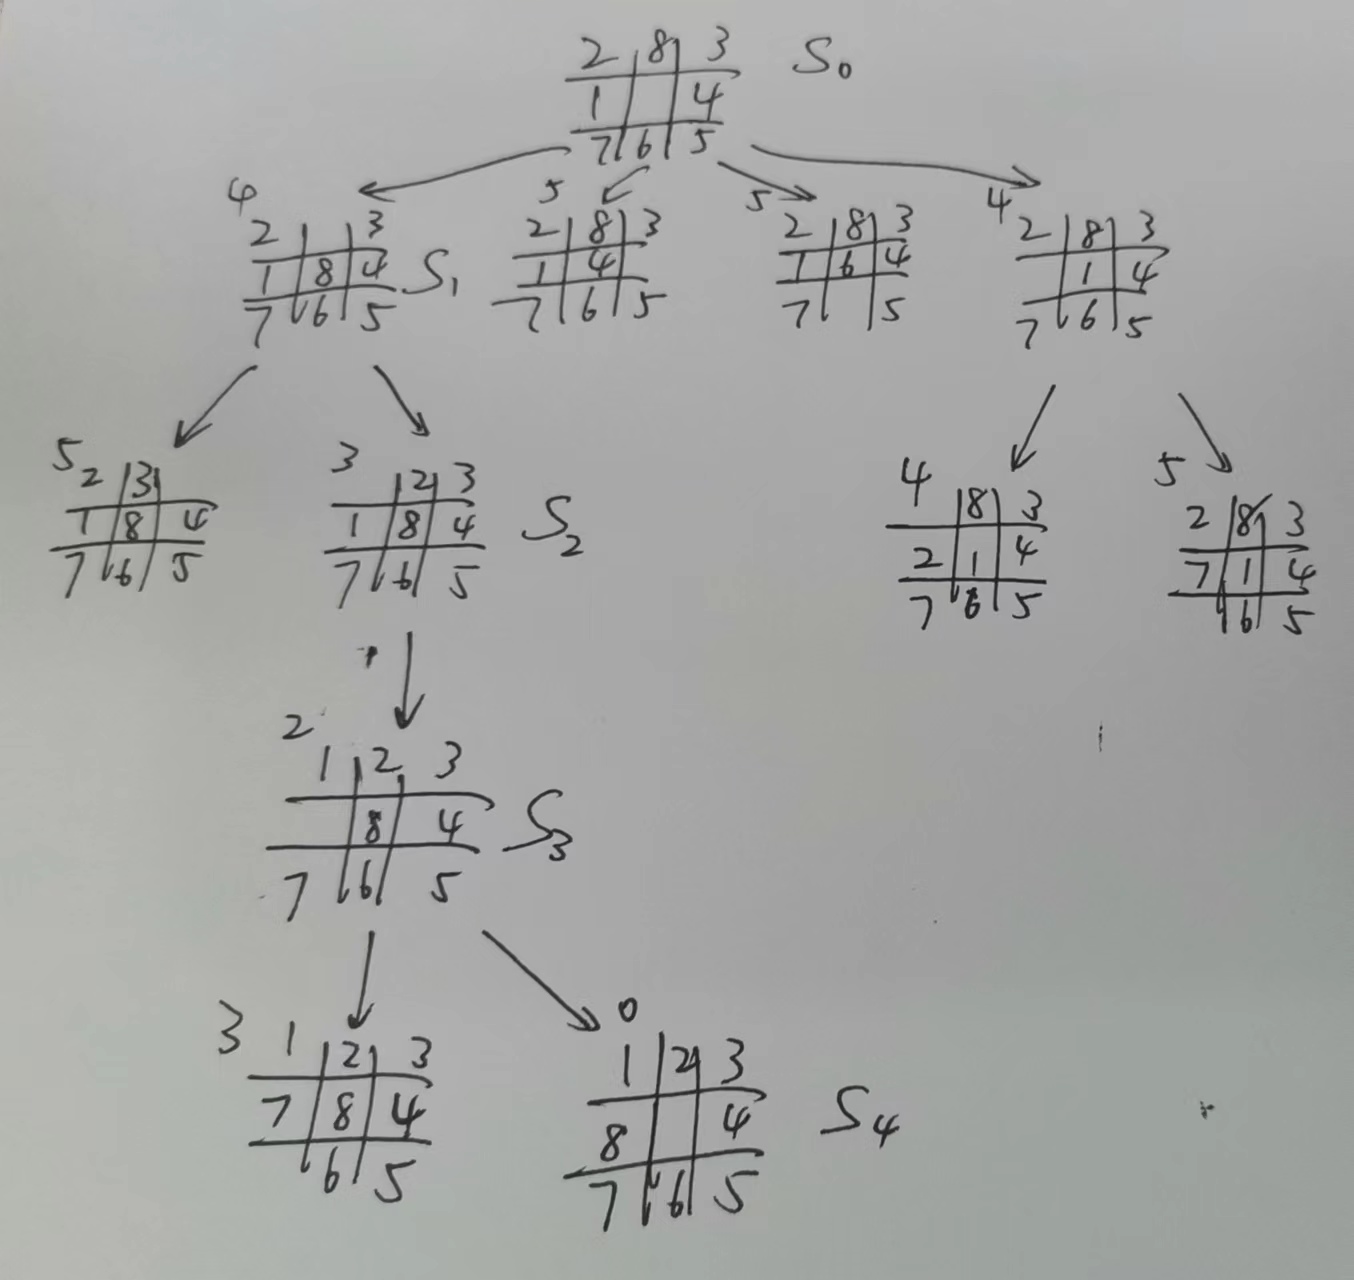 2 8 3 S0
1 4
7 6 5
4
2 3
1 8 4 S1
7 6 5
5
2 8 3
1 4
7 6 5
5
2 8 3
1 6 4
7 5
4
2 8 3
1 4
7 6 5
5
2 3
1 8 4
7 6 5
3
2 3
1 8 4 S2
7 6 5
4
8 3
2 1 4
7 6 5
5
2 8 3
7 1 4
6 5
2
1 2 3
8 4 S3
7 6 5
3
1 2 3
7 8 4
6 5
0
1 2 3
8 4 S4
7 6 5